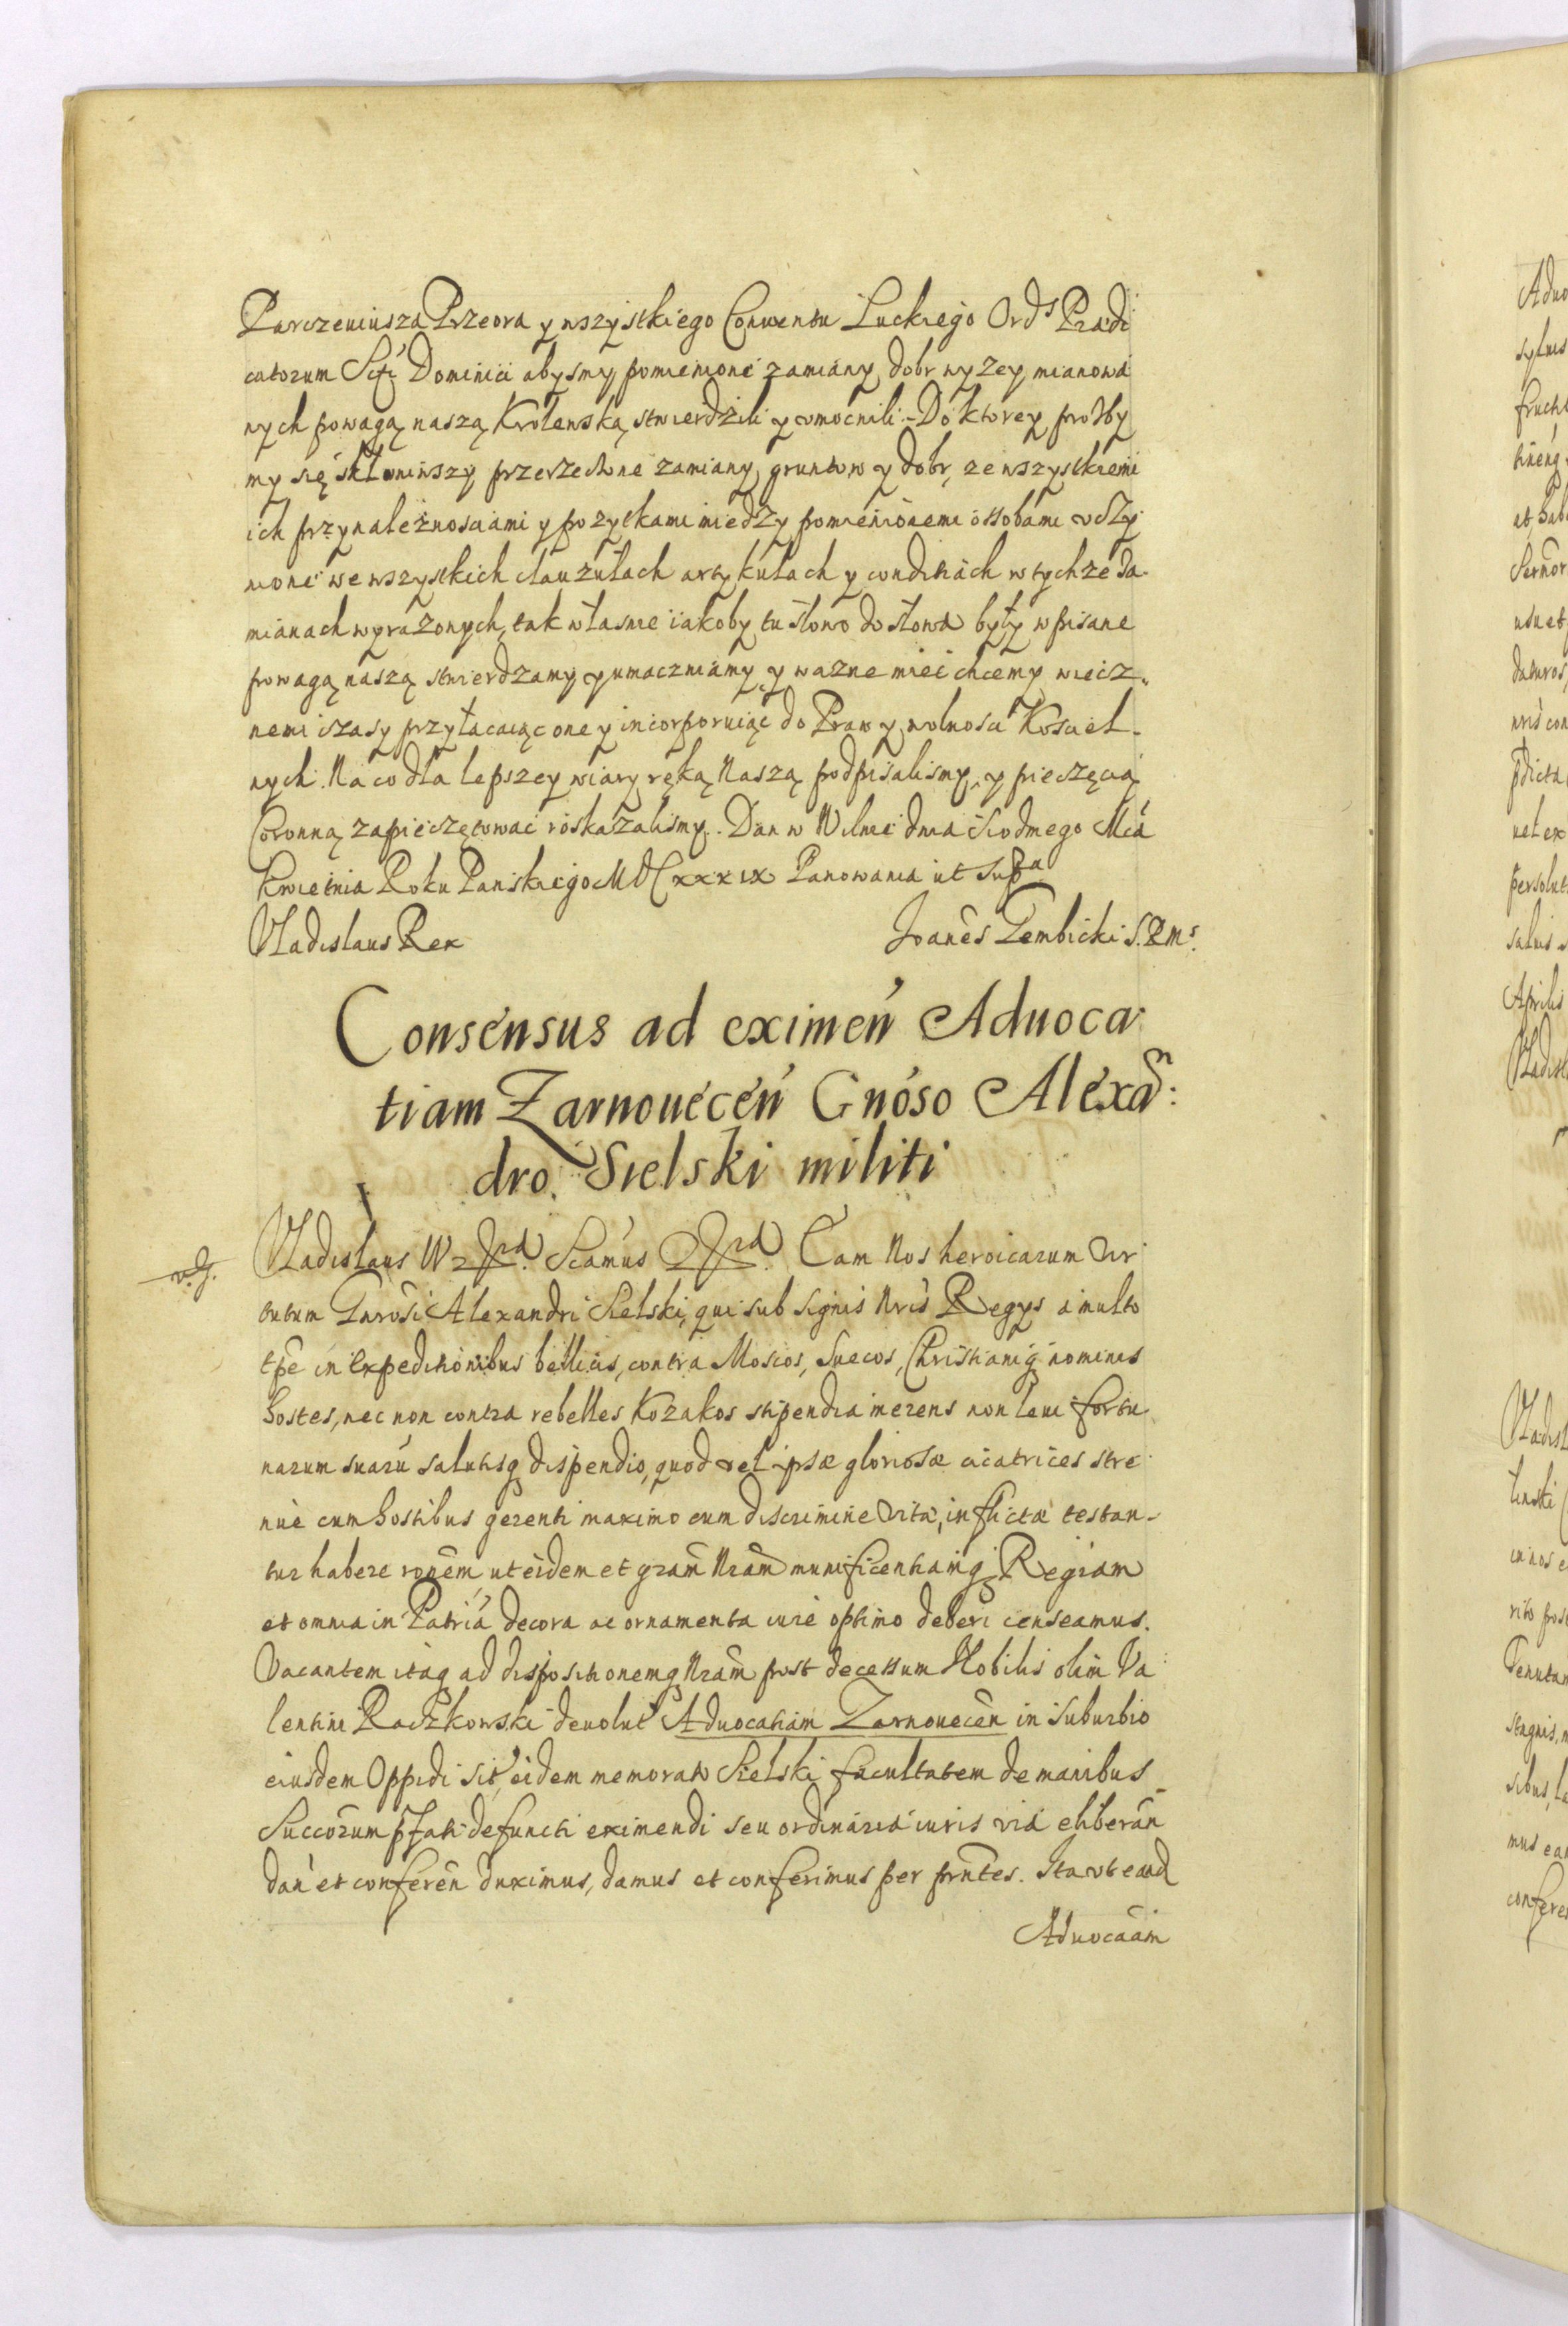 Parczeuiusza Przeora y wszystkiego Conuentu Luckiego Ord^s Prædi
catorum Scti Dominici abysmy pomienione zamiany dobr wyzey mianowa
nych powagą naszą Krolewską stwierdzili y vmocnili. Do ktorey prozby
my się skłoniwszy przerzeczone zamiany gruntow y dobr, ze wszystkiemi
ich przynaleznosciami y pozytkami miedzy pomienionemi ossobami vczy
nione we wszystkich clauzulach artykulach y conditiach w tychze Za-
mianach wyrazonych, tak własnie iakoby tu słowo do słowa były wpisane
powagą naszą stwierdzamy y umaczniamy, y wazne miec chcemy wiecz-
nemi czasy przyłacaiąc one y incorporuiąc do Praw y wolnosci Kosciel-
nych. Na co dla lepszey wiary ręką Naszą podpisalismy, y pieczęcią
Coronną zapieczętowac roskazalismy. Dan w Wilnie dnia Siodmego Mcá
Kwietnia Roku Panskiego MDCxxxix Panowania ut supra
Vladislaus Rex
Joanes Gembicki S.R.M^s.
Consensus ad eximen Aduoca
tiam Zarnouecen Gnoso Alexa^n:
dro. Sielski militi
v.g.
Vladislaus IV & Scamus & Cam Nos heroicarum Vir
tutum Gnrosi Alexandri Sielski, qui sub signis Nris Regys a multo
tpe in expeditionibus bellicis, contra Moscos, Suecos, Christianiq nominis
hostes, nec non contra rebelles Kozakos stipendia merens non leui fortu
narum suaru salutisq dispendio, quod vel ipsæ gloriosæ cicatrices stre
nue cum hostibus gerenti maximo cum discrimine vitæ, inflictæ testan-
tur habere ronem ut eidem et gram Nram munificentiamq Regiam
et omnia in Patriá decora ac ornamenta iure optimo deberi censeamus.
Vacantem itaq ad dispositionemq Nram post decessum Nobilis olim Va
lentini Raczkowski deuolut Aduocatiam Zarnouecen in suburbio
eiusdem Oppidi sit, eidem memorato Sielski facultatem de manibus
Succorum pfati defuncti eximendi seu ordinariá iuris viá eliberan
dan et conferen duximus, damus et conferimus per prntes. Ita vt eand
Aduocaam